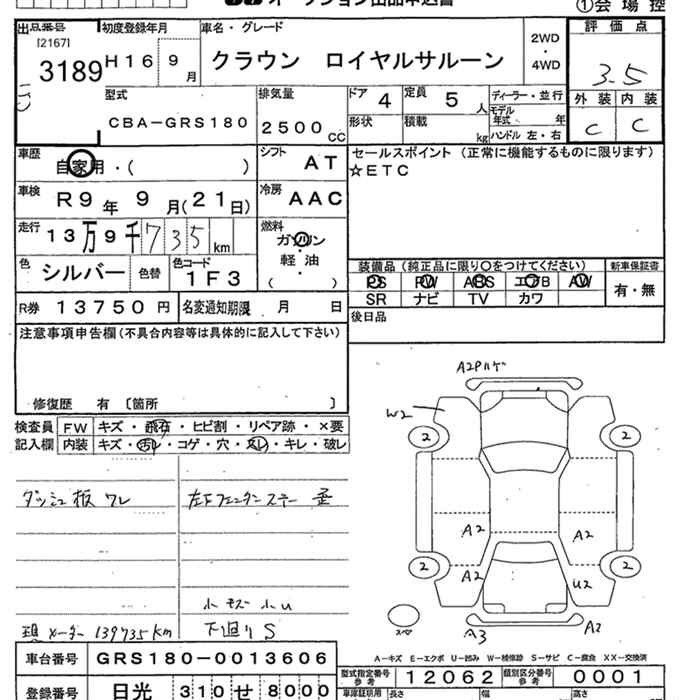 ①会場控
出品番号
[2167]
3189
初度登録年月
H16 9月
車名・グレード
クラウン ロイヤルサルーン
2WD
・
4WD
評価点
3.5
外装 内装
C C
型式
CBA-GRS180
排気量
2500cc
ドア 4
定員 5人
形状
積載 kg
ディーラー・並行
モデル年式 年
ハンドル 左・右
車歴
自家用・( )
シフト AT
セールスポイント (正常に機能するものに限ります)
☆ETC
車検
R9年 9月(21日)
冷房 AAC
走行
13万9千735km
燃料
ガソリン
軽油
( )
色 シルバー
色替
色コード 1F3
装備品 (純正品に限り○をつけてください)
新車保証書
PS PW ABS エアB AW
有・無
SR ナビ TV カワ
R券 13750円
名変通知期限 月 日
後日品
注意事項申告欄(不具合内容等は具体的に記入して下さい)
修復歴 有 〔箇所 〕
検査員 FW キズ・飛石・ヒビ割・リペア跡・×要
記入欄 内装 キズ・汚れ・コゲ・穴・スレ・キレ・破レ
ダッシュ板 ワレ
左Fフェンダーステー 歪
小キズ 小U
現メーター 139735km
下廻りS
A2Pハゲ
W2
2 2
A2 A2
2 2
A2 U2
スペ
A3 A2
A-キズ E-エクボ U-凹み W-補修跡 S-サビ C-腐食 XX-交換済
車台番号 GRS180-0013606
型式指定番号 参考 12062
類別区分番号 参考 0001
登録番号 日光 310 せ 8000
長さ 幅 高さ